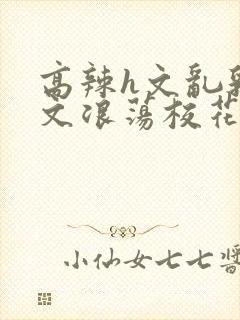 高辣h文乱乳
文浪荡校花
小仙女七七酱